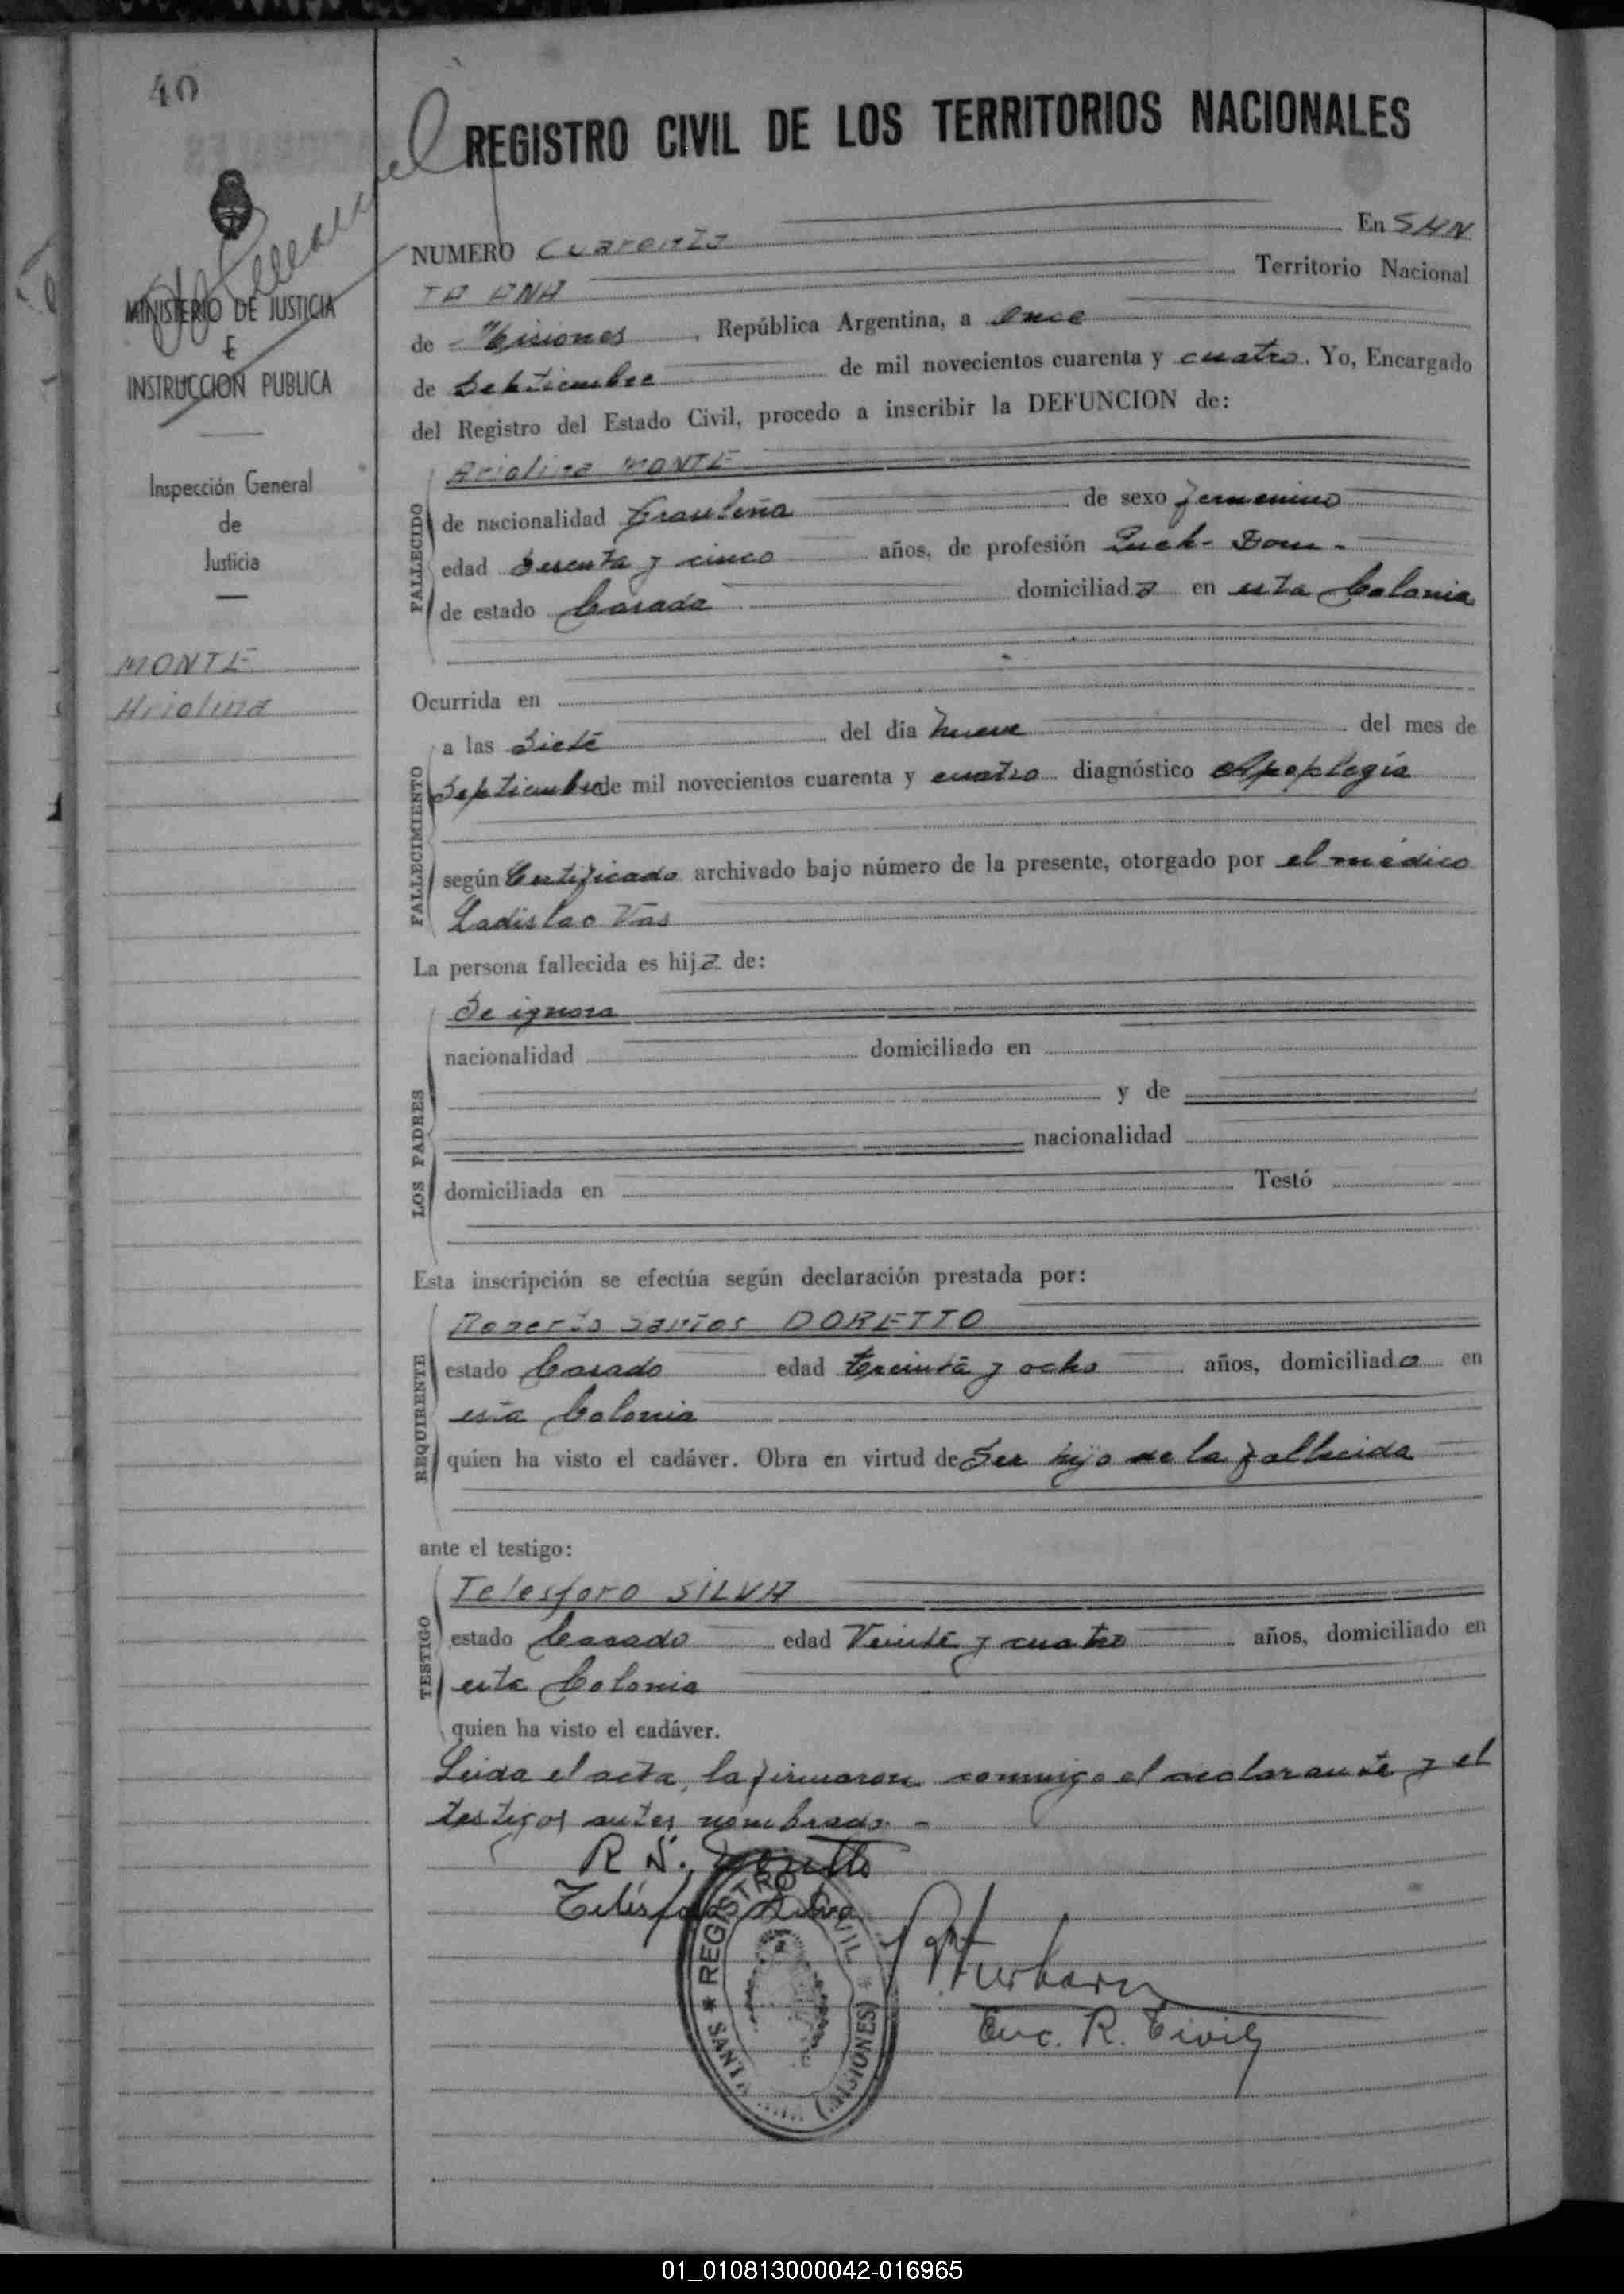 40
REGISTRO CIVIL DE LOS TERRITORIOS NACIONALES
MINISTERIO DE JUSTICIA
E
INSTRUCCION PUBLICA
Inspección General
de
Justicia
MONTE
Ariolina
NUMERO Cuarenta En SAN
TA ANA Territorio Nacional
de Misiones, República Argentina, a once
de Septiembre de mil novecientos cuarenta y cuatro. Yo, Encargado
del Registro del Estado Civil, procedo a inscribir la DEFUNCION de:
FALLECIDO
Ariolina MONTE
de nacionalidad brasileña de sexo femenino
edad Sesenta y cinco años, de profesión Queh- Dom-
de estado Casada domiciliada en esta Colonia
Ocurrida en
FALLECIMIENTO
a las Siete del día nueve del mes de
Septiembre de mil novecientos cuarenta y cuatro diagnóstico Apoplegia
según Certificado archivado bajo número de la presente, otorgado por el médico
Ladislao Vas
La persona fallecida es hija de:
LOS PADRES
Se ignora
nacionalidad domiciliado en
y de
nacionalidad
domiciliada en Testó
Esta inscripción se efectúa según declaración prestada por:
REQUIRENTE
Roberto Santos DORETTO
estado Casado edad treinta y ocho años, domiciliado en
esta Colonia
quien ha visto el cadáver. Obra en virtud de Ser hijo de la fallecida
ante el testigo:
TESTIGO
Telesforo SILVA
estado Casado edad Veinte y cuatro años, domiciliado en
esta Colonia
quien ha visto el cadáver.
Leida el acta, la firmaron conmigo el declarante y el
testigos antes nombrado.-
R S. Doretto
Telésforo Silva
Enc. R. Civil
REGISTRO CIVIL * SANTA ANA (MISIONES) *
01_010813000042-016965